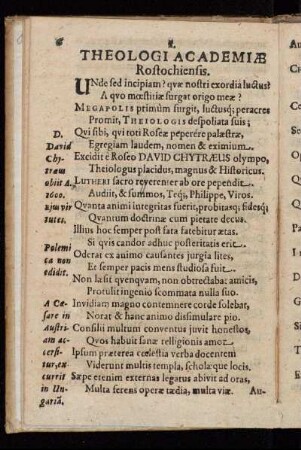 THEOLOGI ACADEMIÆ
Rostochiensis.
UNde sed incipiam? quæ nostri exordia luctus?
A quo mœstitiæ surgat origo meæ?
MEGAPOLIS primùm surgit, luctusq; peracres
Promit, THEOLOGIS despoliata suis;
Qui sibi, qui toti Roseæ peperére palæstræ,
Egregiam laudem, nomen & eximium.
Excidit è Roseo DAVID CHYTRÆUS olympo,
Theologus placidus, magnus & Historicus.
LUTHERI sacro reverenter ab ore pependit.
Audiit, & summos, Teq;, Philippe, Viros.
Quanta animi integritas fuerit, probitasq; fidesq;
Quantum doctrinæ cum pietate decus.
Illius hoc semper post fata fatebitur ætas.
Si quis candor adhuc posteritatis erit.
Oderat ex animo causantes jurgia lites,
Et semper pacis mens studiosa fuit.
Non læsit quenquam, non obtrectabat amicis,
Protulit ingenio scommata nulla suo.
Invidiam magno contemnere corde solebat,
Norat & hanc animo dissimulare pio.
Consilii multum conventus juvit honestos,
Quos habuit sanæ relligionis amor.
Ipsum præterea cœlestia verba docentem
Viderunt multis templa, scholæque locis.
Sæpe etenim externas legatus abivit ad oras,
Multa ferens operæ tædia, multa viæ.
Au-
D.
David
Chy-
træus
obiit A.
1600.
ejus vir
tutes.
Polemi
ca non
edidit.
A Cæ-
sare in
Austri-
am ac-
cersi-
tur, ex-
currit
in Un-
gariã.